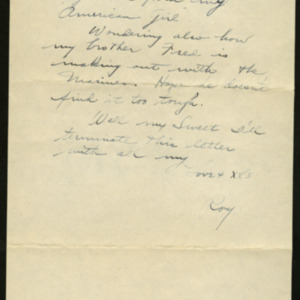 my
American girl
Wondering also how
my brother Fred is
making out with the
Marines. Hope he doesn't
find it too tough.
Well my Sweet I'll
terminate this letter
with all my
Love XXX
Roy